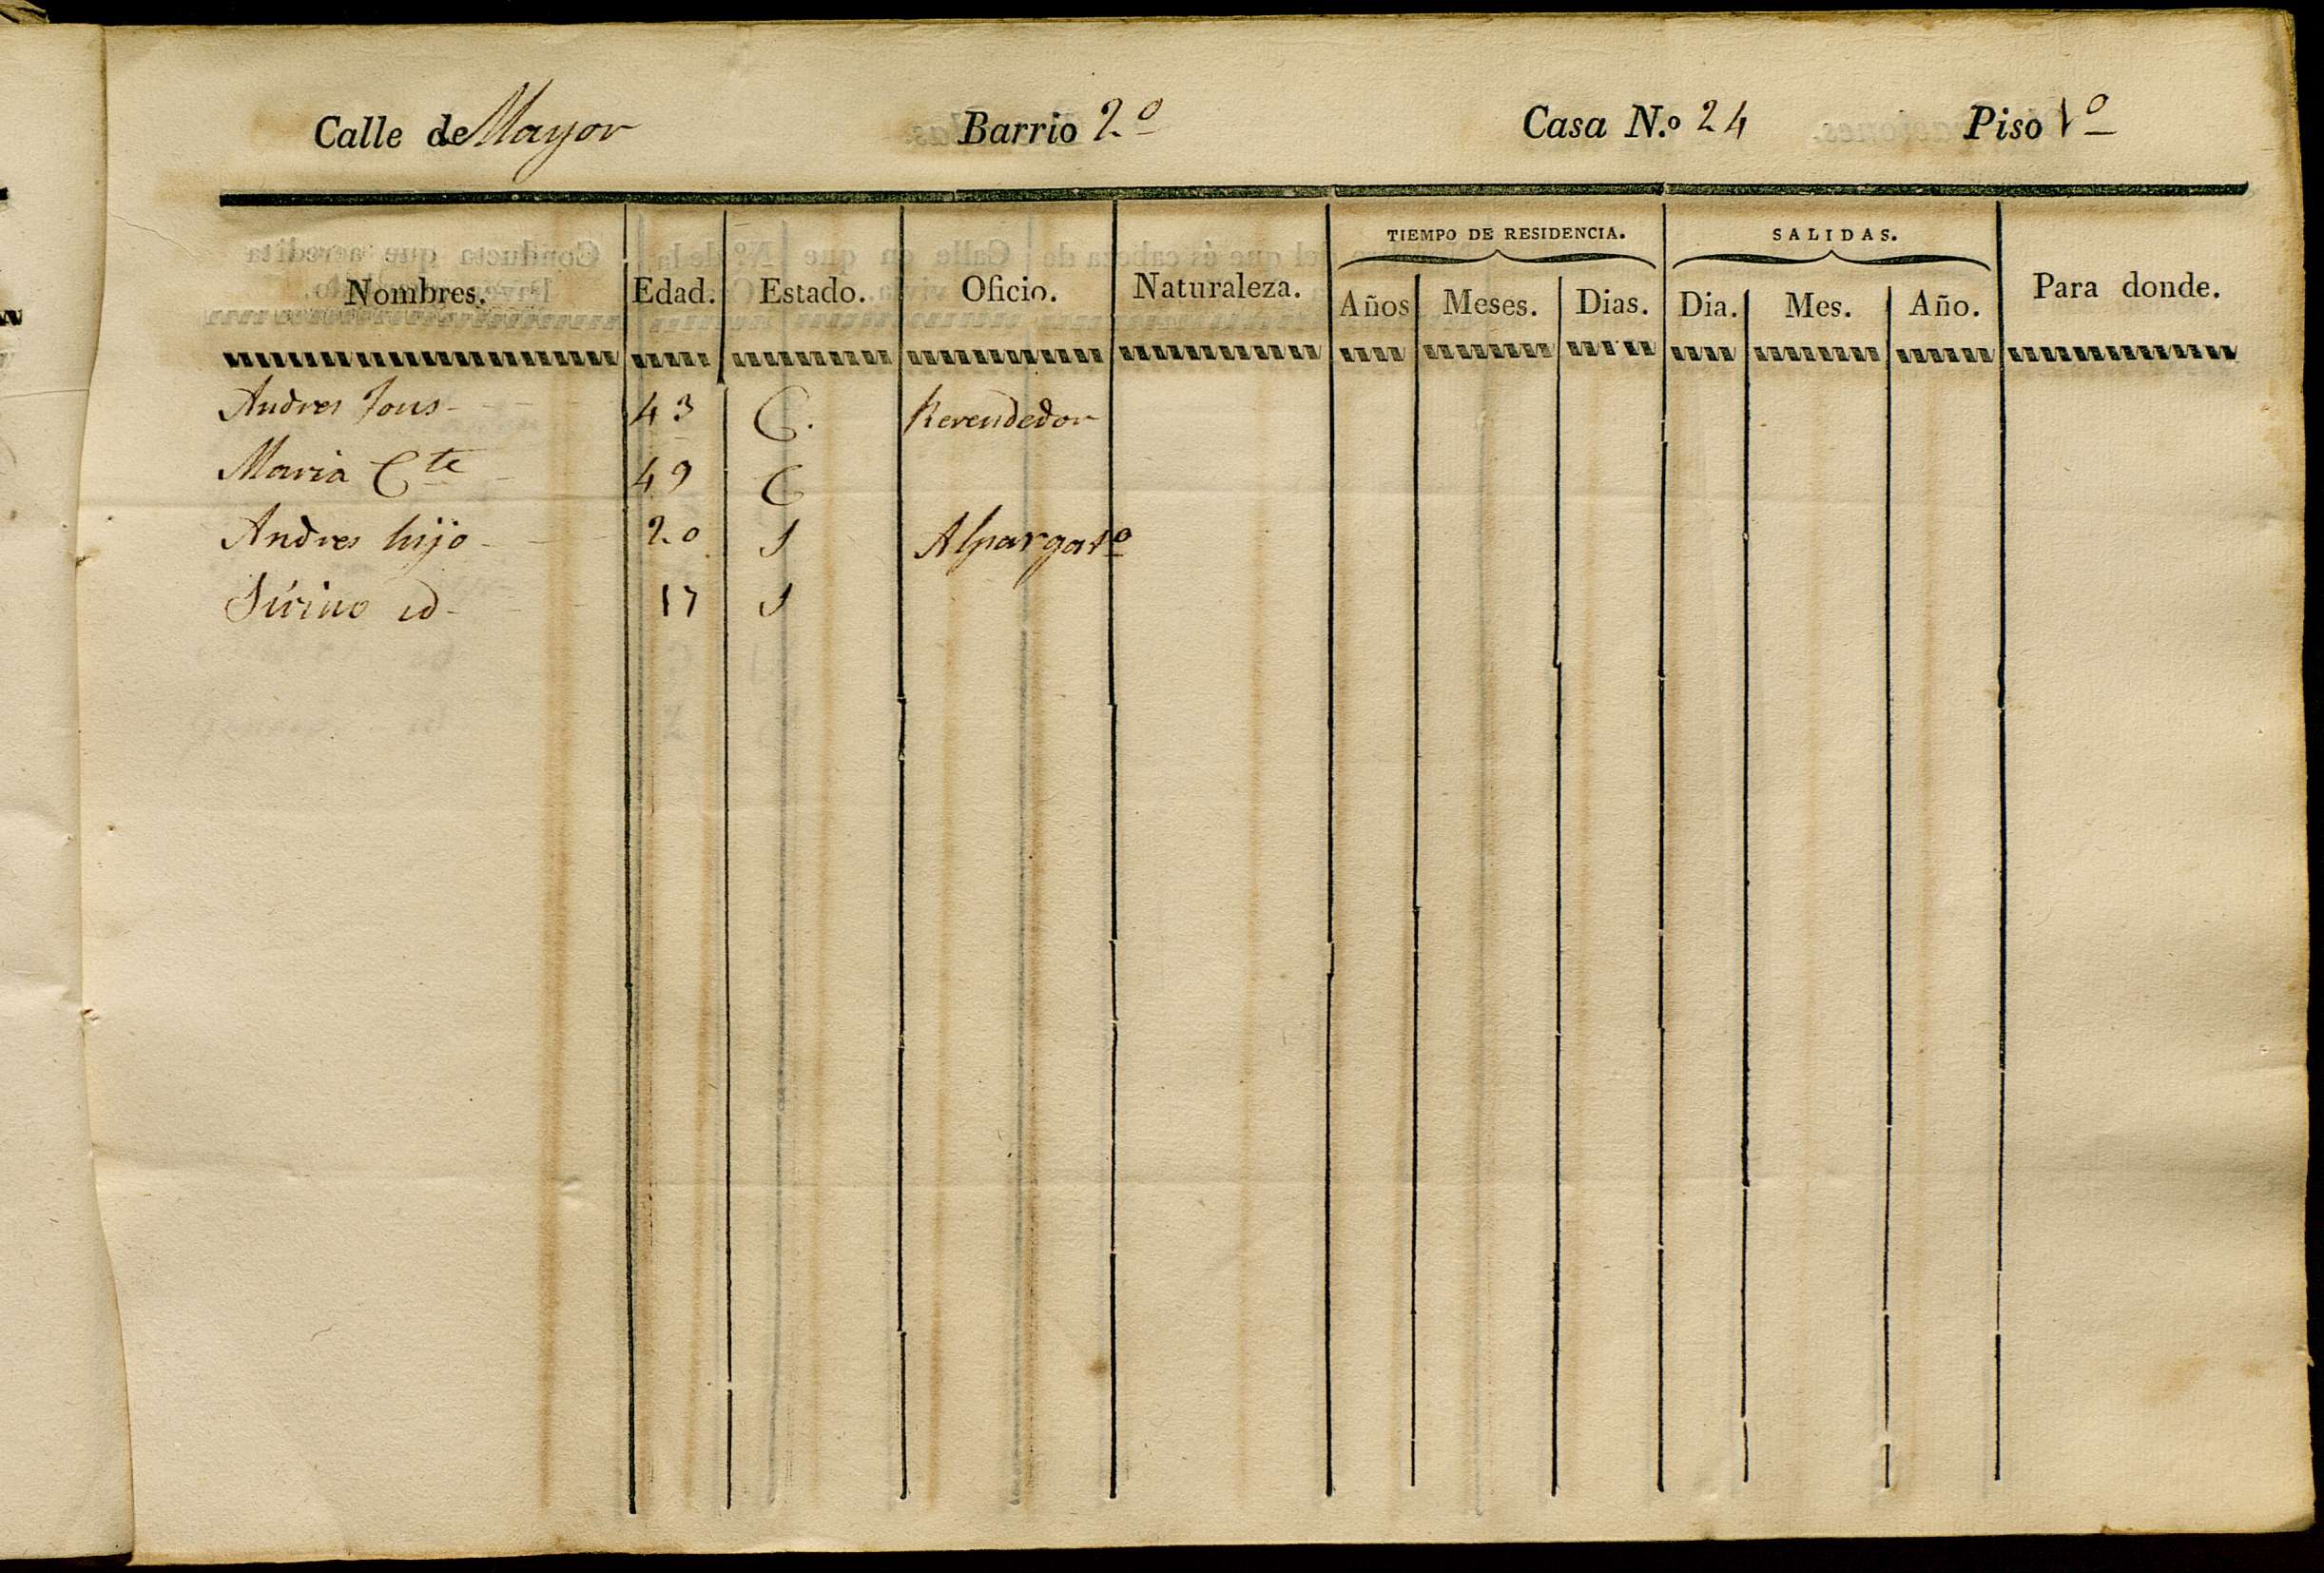 Calle de Mayor Barrio 2.º Casa N.º 24 Piso 1º
TIEMPO DE RESIDENCIA. SALIDAS.
Nombres. Edad. Estado. Oficio. Naturaleza. Años Meses. Dias. Dia. Mes. Año. Para donde.
Andres 43 C. Revendedor
Maria Cte 49 C
Andres hijo 20 S Alpargato
id 17 S